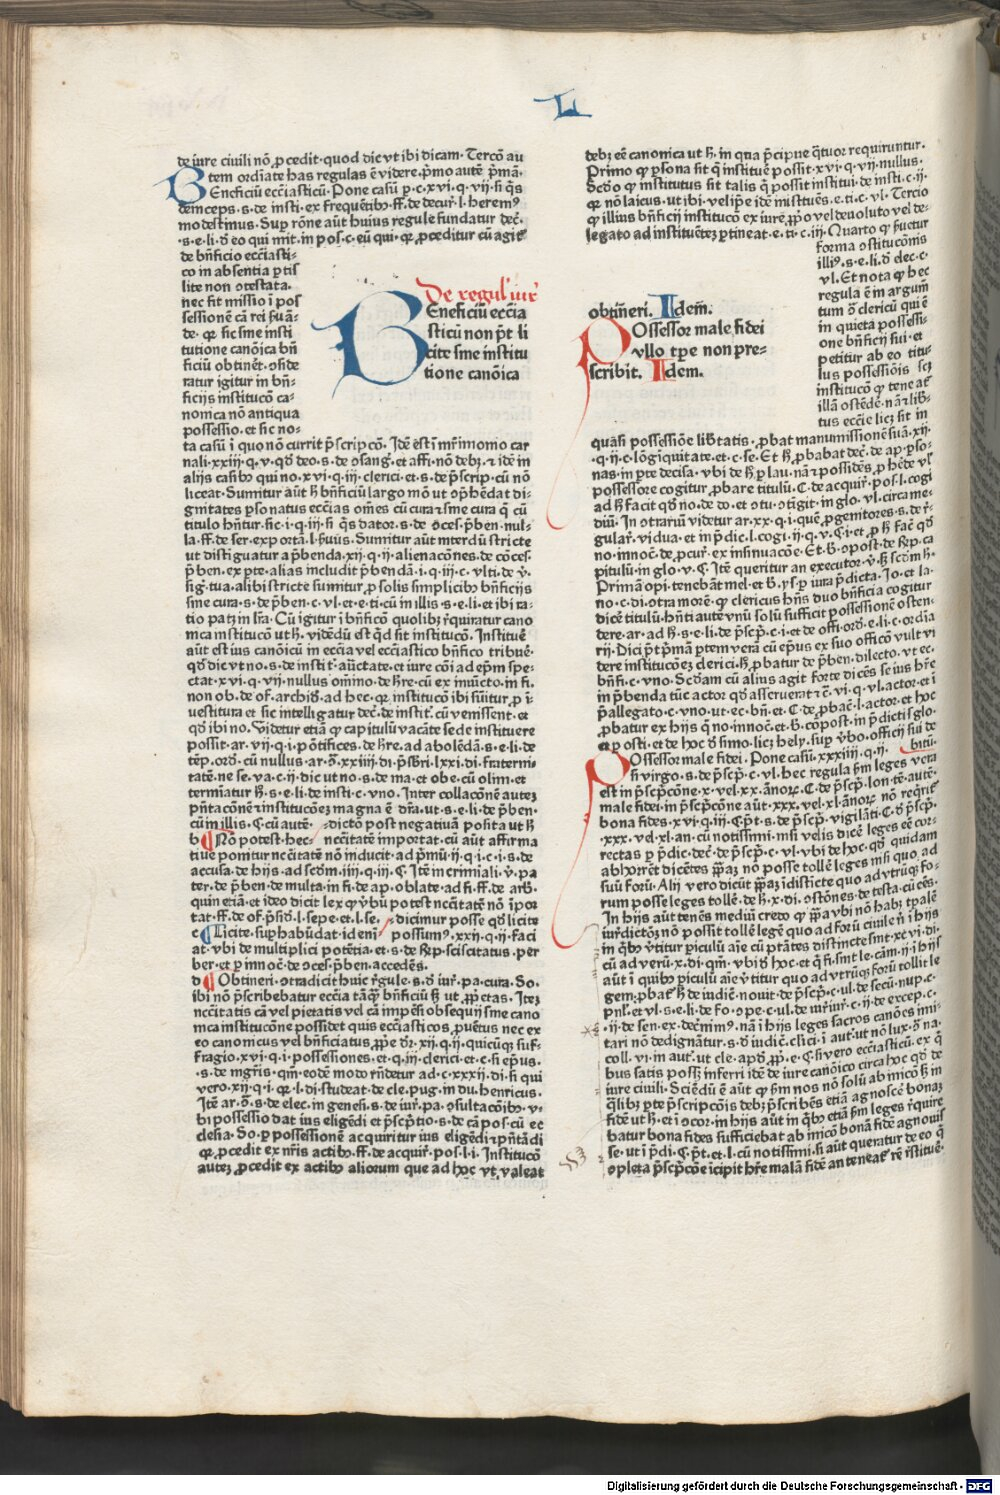 L
de iure ciuili nō ꝓcedit·quod dic vt ibi dicam·Terco᷈ au
tem ordīate has regulas ē videre·p̄mo autē p̄mā·
BEneficiū ecc̄iasticū·Pone casū p·c·xvi·q·vij·si q̄s
deinceps·s·de insti·ex frequētib᷒·ff·de decur·l·herem᷒
mo destinus·Sup rōne aūt huius regule fundatur dec̄·
·s·e·li·d̄ eo qui mit·in pos·c·eū qui·ꝙ ꝓceditur cū agit̄
de bn̄ficio ecc̄iasti-
co in absentia ꝑtis
lite non ɔtestata·
nec fit missio ī pos
sessionē cā rei ẜuā-
de·ꝙ sic sine insti
tutione canōica bn̄
ficiū obtinēt·oñde
ratur igitur in bn̄-
ficijs institucō ca-
nonica nō antiqua
possessio·et sic no-
De regul' iur̄
BEneficiū ecc̄ia
sticū non pōt li
cite sine institu
tione canōica
ta casū ī quo nō currit p̄scripcō·Idē est ī mr̄imonio car
nali·xxiij·q·v·qd̄ deo·s·de ɔsanḡ·et affi·nō debꝫ·⁊ idē in
alijs casib᷒ qui no·xvi·q·iij·clerici·et·s·de p̄scrip·cū nō
liceat·Sumitur aūt h̄ bn̄ficiū largo mō ut ɔp̄hēdat di-
gnitates ꝑsonatus ecc̄ias om̄es cū cura ⁊ sine cura q̄ cū
titulo hn̄tur·sic·i·q·iij·si q̄s dator·s·de ɔces·p̄ben·nul-
la·ff·de ser·exporta·l·ẜuus·Sumitur aūt interdū stricte
ut distiguatur a p̄benda·xij·q·ij·alienacōnes·de cōces·
p̄ben·ex pte·alias includit p̄bendā·i·q·iij·c·vlti·de v̄·
sig·tua·alibi stricte sumitur ꝓ solis simplicib᷒ bn̄ficijs
sine cura·s·de p̄ben·c·vl·et·e·ti·cū in illis·s·e·li·et ibi ra-
tio patꝫ in lr̄a·Cū igitur ī bn̄ficō quolibꝫ r̄quiratur cano
nica institucō ut h̄·videdū est qd̄ sit institucō·Instituē
aūt est ius canōicū in ecc̄ia vel ecc̄iastico bn̄fico tribuē·
qd̄ dic ut no·s·de instit̄·auctate·et iure cōi ad ep̄m spe-
ctat·xvi·q·vij·nullus om̄imo·de h̄re·cū ex iniucto·in fi·
non ob·de of·archid̄·ad hec·ꝙ institucō ibi sūitur·ꝓ ī-
uestitura et sic intelligatur dec̄·de instit̄·cū venissent·et
qd̄ ibi no·Videtur etiā ꝙ capitulū vacāte sede instituere
possit·ar·vij·q·i·pōtifices·de h̄re·ad abolēdā·s·e·li·de
tēp·ord̄·cū nullus·ar·ɔ̄·xxiiij·di·p̄sbri·lxxi·di·fraterni-
tatē·ne se·va·c·ij·dic ut no·s·de ma·et obe·cū olim·et
termīatur h̄·s·e·li·de insti·c·vno·Inter collacōnē autez
p̄n̄tacōnē ⁊ institucōez magna ē dr̄a·ut·s·e·li·de p̄ben·
cū in illis·§·cū autē· dictō post negatiuā posita ut h̄
b ¶ Nō potest·hec nec̄citatē importat·cū aūt affirma
tiue ponitur nec̄itatē nō inducit·ad p̄mū·ij·q·i·c·i·s·de
accusa·de hijs·ad scd̄m·iiij·q·iij·§·Itē in crimiali·v̄·pa
ter·de p̄ben·de multa·in fi·de ap·oblate·ad fi·ff·de arb̄·
quin etiā·et ideo dicit lex ꝙ v̄bū potest nec̄itatē nō īpor
tat·ff·de of·p̄sid̄·l·sepe·et·l·se· dicimur posse qd̄ licite
c ¶ Licite·suphabūdat·id enī possum᷒·xxij·q·ij·faci
at·vbi de multiplici potētia·et·s·de scrip·sciscitatus·per
ber·et ꝑ innoc̄·de ɔces·p̄ben·accedēs·
d ¶ Obtineri·ɔtradicit huic r̄gule·s·d̄ iur̄·pa·cura·So·
ibi nō p̄scribebatur ecc̄ia tāq᷈ bn̄ficiū h̄ ut ꝓp̄etas·Itez
nec̄itatis cā vel pietatis vel cā impēsi obsequij sine cano
nica institucōne possidet quis ecc̄iasticos ꝓuētus nec ex
eo canonicus vel bn̄ficiatus ꝓp̄e dr̄·xij·q·ij·quicūqꝫ suf-
fragio·xvi·q·i·possessiones·et·q·iij·clerici·et·c·si ep̄us·
·s·de mgr̄is·qm̄·eodē modo rn̄detur ad·c·xxxij·di·si qui
vero·xij·q·i·ꝙ·l·di·studeat·de cle·pug·in du·henricus·
Itē ar·ɔ̄·s·de elec·in genesi·s·de iur̄·pa·ɔsultacōib᷒·v-
bi possessio dat ius eligēdi et p̄scp̄tio·s·de cā pos·cū ec
clesia·So·ꝑ possessionē acquiritur ius eligēdi ⁊ p̄n̄tādi
ꝙ ꝓcedit ex nr̄is actib᷒·ff·de acquir̄·pos·l·i·Institucō
autez ꝓcedit ex actib᷒ aliorum que ad hoc vt valeat
debꝫ eē canonica ut h̄·in qua p̄cipue q̄tuor requiruntur·
Primo ꝙ ꝑsona sit q̄ instituē possit·xvi·q·vij·nullus·
Scd̄o ꝙ institutus sit talis q̄ possit institui·de insti·c·ij·
ꝙ nō laicus·ut ibi·vel ip̄e idē mistuēs·e·ti·c·vl·Tercio
ꝙ illius bn̄ficij institucō ex iure ꝓp̄o vel deuoluto vel de-
legato ad instituētez ptineat·e·ti·c·iij·Quarto ꝙ ẜuetur
forma ɔstitucōnis
illi᷒·s·e·li·d̄ dec·c·
vl·Et nota ꝙ hec
regula ē in argum̄
tum ɔ̄ clericū qui ē
in quieta possessi-
one bn̄ficij sui·et
petitur ab eo titu-
lus possessiōis scꝫ
institucō ꝙ tene at̄
illā ostēdē·nā ⁊ lib̄-
tus ecc̄ie licꝫ sit in
obtīneri. Idem̄.
POssessor male fidei
vllo tp̄e non pre-
scribit. Idem.
quasi possessiōe lib̄tatis·ꝓbat manumissionē suā·xij·
·q·ij·c·lōgīquitate·et·c·se·Et h̄ ꝓbabat dec̄·de ap·ꝑso-
nas·in ꝑte decisa·vbi de h̄·ꝑ lau·nā ⁊ possidēs·ꝓ h̄ede vl̄
possessore cogitur ꝓbare titulū·C·de acquir̄·pos·l·cogi
ad h̄ facit qd̄ no·de do·et ɔtu·ɔtigit·in glo·vl·circa me-
diū·In ɔtrariū videtur ar·xx·q·i·quē ꝓgenitores·s·de r̄-
gular̄·vidua·et in p̄dic·l·cogi·ij·q·v·§·i·et·ꝓ h̄ fac̄ qd̄
no·innoc̄·de ꝓcur̄·ex insinuacōe·Et·b̄·ɔpost·de scrip·ca
pitulū·in glo·v·§·Itē queritur an executor·v̄·h̄ scd̄m h̄·
Primā opi·tenebāt mel·et b̄·ysꝑ iura p̄dicta·Jo·et la-
no·c·di·ɔtra morē·ꝙ clericus hn̄s duo bn̄ficia cogitur
dicē titulū·hn̄ti autē vnū solū sufficit possessionē osten-
dere·ar·ad h̄·s·e·li·de p̄scp̄·c·i·et de offi·ord̄·e·li·c·ordīa
rij·Dici pōt p̄mā ptem verā cū ep̄us ex suo officō vult vi
dere institucōez clerici·h̄ ꝓbatur de p̄ben·dilecto·vt ec·
bn̄fi·c·vno·Scd̄am cū alius agit forte dicēs se ius h̄re
in p̄benda tūc actor qd̄ asseruerat ⁊ c̄·vi·q·vl·actor·et ī
p̄allegato·c·vno·ut·ec·bn̄·et·C·de ꝓbac̄·l·actor·et hoc
ꝓbatur ex hijs q̄ no·innoc̄·et·b̄·cōpost·in p̄dicti glo·
ca ꝓ osti·et de hoc d̄ simo·licꝫ hely·sup v̄bo·officij sui de
POssessor male fidei·Pone casū·xxxiiij·q·ij· bitū·
si virgo·s·de p̄scp̄·c·vl·hec regula h̄m leges vera
est in p̄scp̄cōne·x·vel·xx·ānoꝝ·C·de p̄scp̄·lon·tē·autē·
male fidei·in p̄scp̄cōne aūt·xxx·vel·xl·ānoꝝ nō req̄rit̄
bona fides·xvi·q·iij·§·pt̄·s·de p̄scp̄·vigilāti·C·d̄ p̄scp̄·
·xxx·vel·xl·an·cū notissimi·nisi velis dicē leges eē cor-
rectas ꝑ p̄dic·dec̄·de p̄scp̄·c·vl·vbi de hoc·qd̄ quidam
abhorrēt dicētes pp̄az nō posse tollē leges nisi quo ad
suū forū·Alij vero dicūt pp̄az idisticte quo ad vtrūqꝫ fo-
rum posse leges tollē·de h̄·x·di·ɔstōnes·de testa·cū eēs·
In hijs aūt tenēs mediū credo ꝙ pp̄a vbi nō habꝫ tp̄alē
iur̄dictōꝫ nō possit tollē legē quo ad forū ciuile n̄ ī hijs
in q̄b᷒ v̄titur ꝑiculū aīe cū ptātes distincte sint·xcvi·di·
cū ad verū·x·di·qm̄·vbi d̄ hoc·et q̄ fi·sint le·cām·ij·ī hijs
aūt ī quib᷒ ꝑiculū aīe v̄titur quo ad vtrūqꝫ forū tollit le
gem·ꝓbat̄ h̄·de iudic̄·nouit·de p̄scp̄·c·ul·de secū·nup·c·
pnl̄·et vl·s·e·li·de fo·ɔpe·c·ul·de iur̄iur̄·c·ij·de excep·c·
·ij·de sen·ex·decr̄nim᷒·nā ī hijs leges sacros canōes imi-
tari nō dedignātur·s·d̄ iudic̄·clīci·ī aut·ut nō lux·ɔ̄ na·
coll·vi·in aut·ut cle·apd̄·ꝓp̄·e·§·si vero ecc̄iasticū·ex q̄
bus satis possꝫ inferri idē de iure canōico circa hoc qd̄ de
iure ciuili·Sciēdū ē aūt ꝙ h̄m nos nō solū ab inicō h̄ in
q̄libꝫ pte p̄scripcōis debꝫ p̄scribēs etiā agnoscē bonaz
fidē ut h̄·et ī ɔcor·in hijs aūt in q̄b᷒ etiā h̄m leges r̄quire
batur bona fides sufficiebat ab inicō bonā fidē agnouis
se·ut ī p̄di·§·pt̄·et·l·cū notissimi·si aūt queratur de eo q̄
ɔpleta p̄scp̄cōe īcipit h̄re malā fidē an teneat̄ rē r̄stituē·
Digitalisierung gefördert durch die Deutsche Forschungsgemeinschaft - DFG